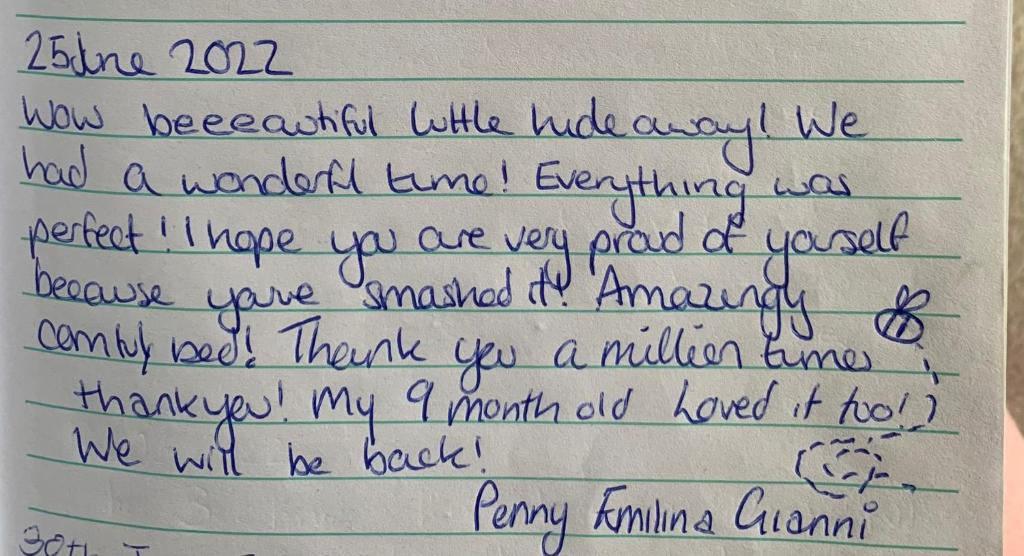 25 June 2022
Wow beeeautiful little hideaway! We
had a wonderful time! Everything was
perfect!! I hope you are very proud of yourself
because youve smashed it! Amazingy
comfy bed! Thank you a million times
thankyou! My 9 month old loved it too!
We will be back!
Penny Emilina Gianni
30th